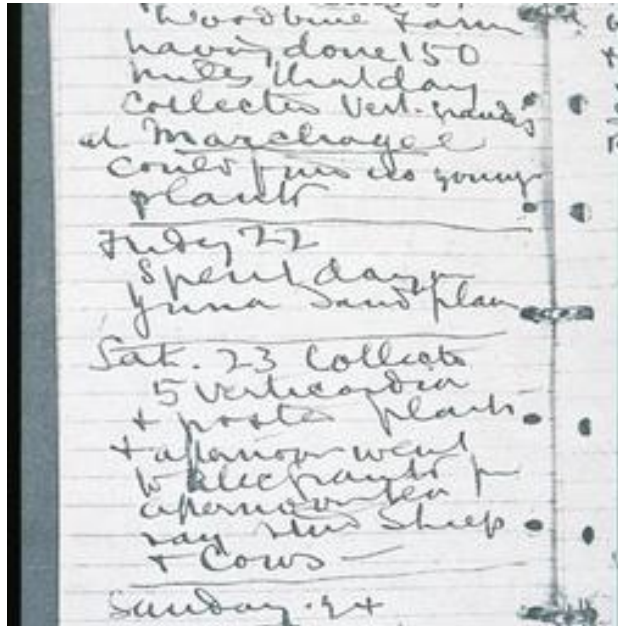 Woodbine Farm
having done 150
miles that day
Collected Vert. grandis
at Marchagee
could find no young
plants
Friday 22
Spent day on
Yuna Sand plain
Sat. 23 Collected
5 verticordia
+ posted plants
+ afternoon went
to
afternoon tea
Sheep
+ Cows —
Sunday. 24